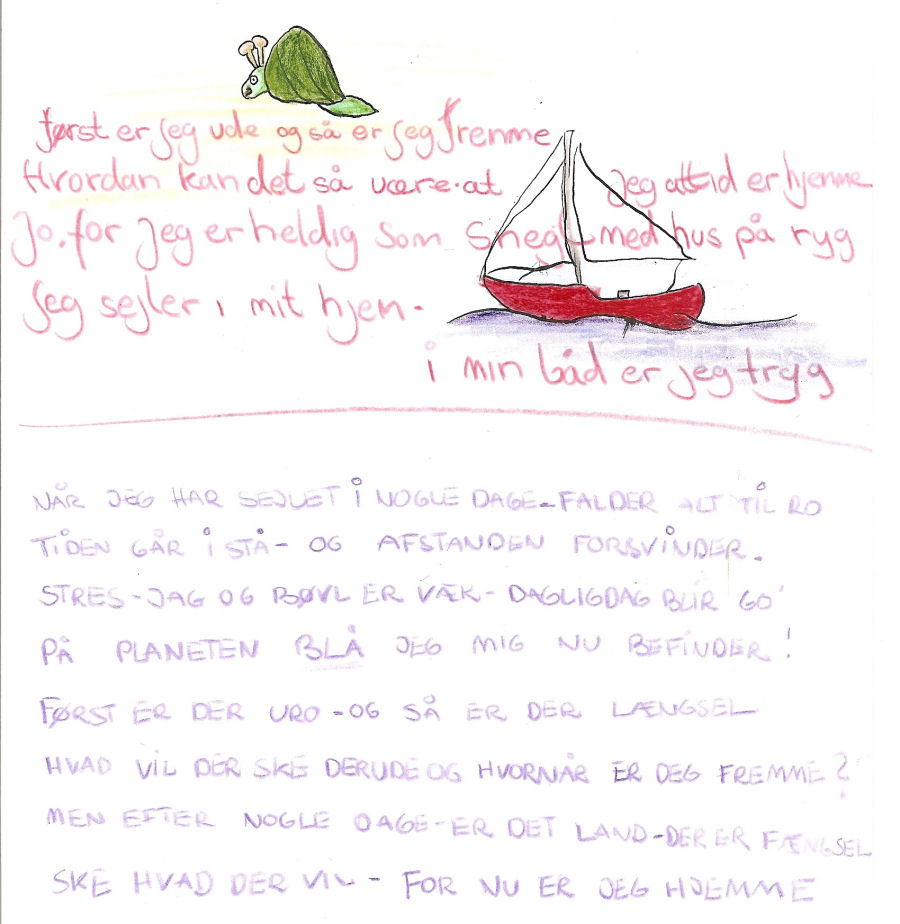 først er jeg ude og så er jeg fremme
Hvordan kan det så være at jeg altid er hjemme
Jo, for jeg er heldig som Snegl med hus på ryg
Jeg sejler i mit hjem -
i min båd er jeg tryg
NÅR JEG HAR SEJLET I NOGLE DAGE - FALDER ALT TIL RO
TIDEN GÅR I STÅ - OG AFSTANDEN FORSVINDER.
STRES - JAG OG BØVL ER VÆK - DAGLIGDAG BLIR GO'
PÅ PLANETEN BLÅ JEG MIG NU BEFINDER!
FØRST ER DER URO - OG SÅ ER DER LÆNGSEL
HVAD VIL DER SKE DERUDE OG HVORNÅR ER JEG FREMME?
MEN EFTER NOGLE DAGE - ER DET LAND - DER ER FÆNGSEL
SKE HVAD DER VIL - FOR NU ER JEG HJEMME